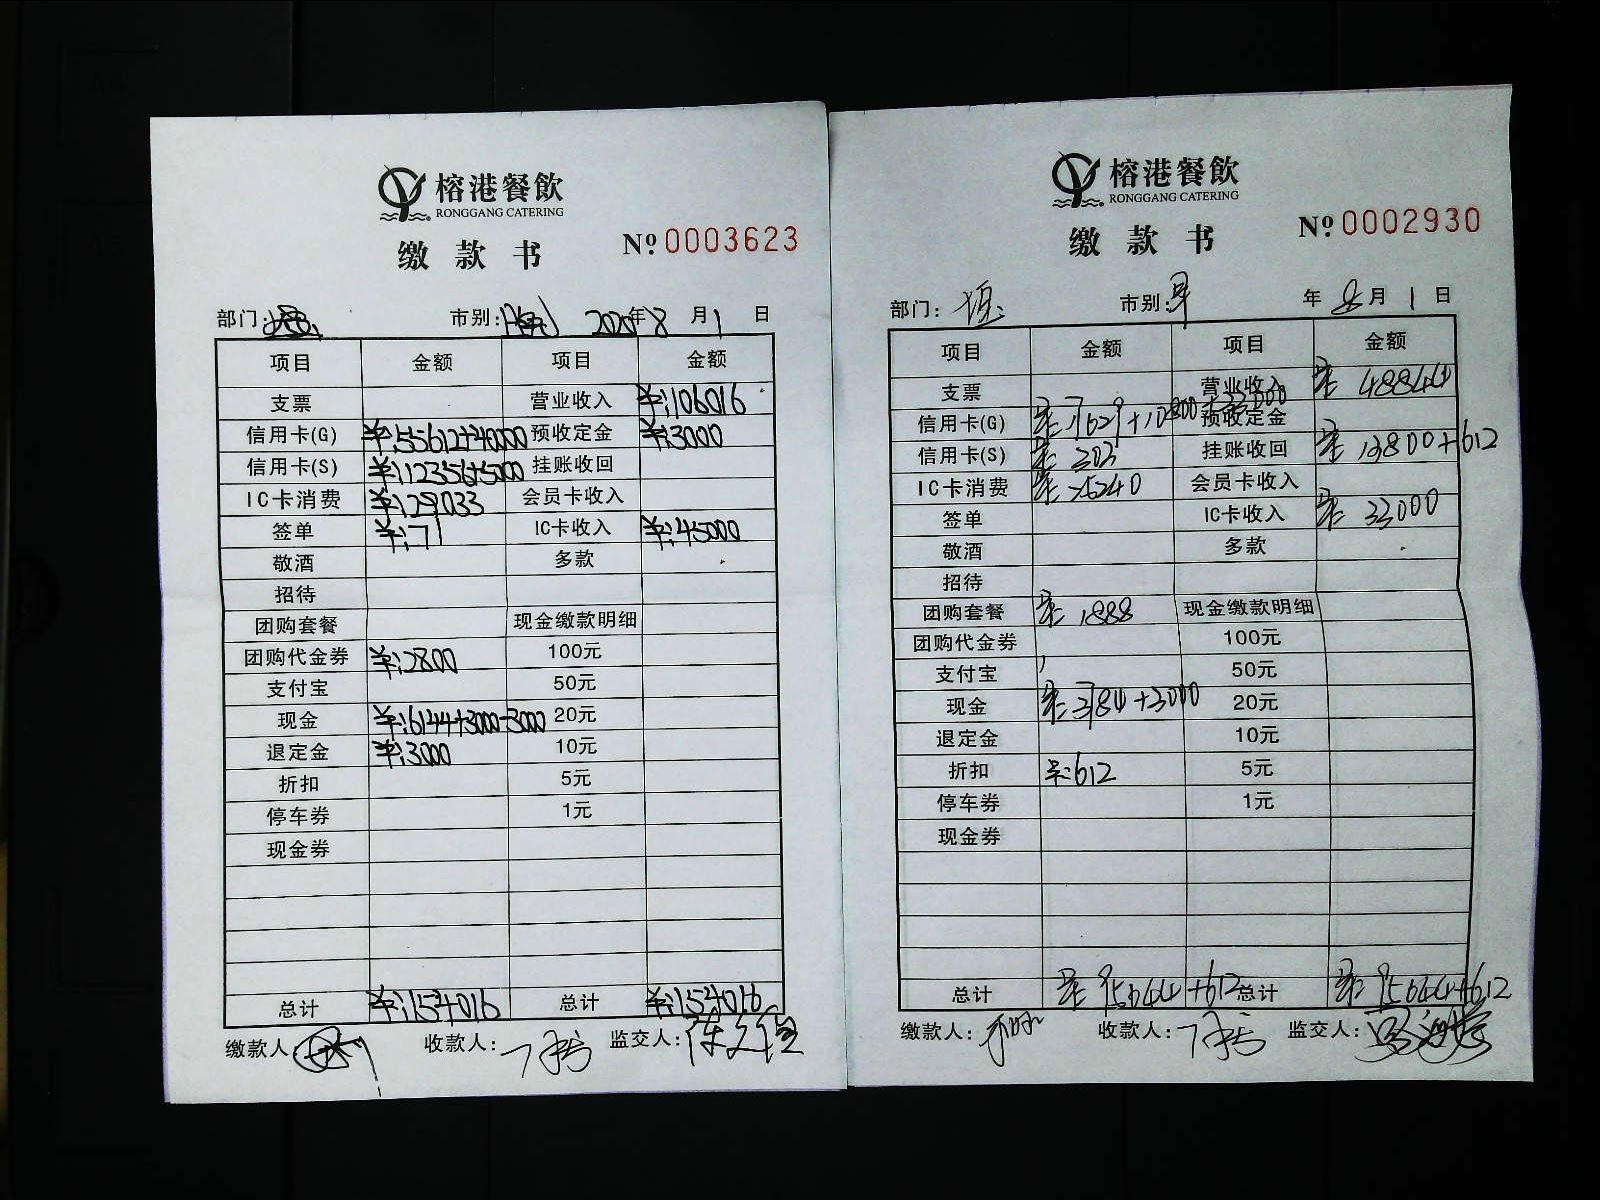 榕港餐飲
RONGGANG CATERING
缴 款 书 № 0003623
部门: 市别: 晚 2020年8月1日
项目 金额 项目 金额
支票 营业收入 ¥:106016
信用卡(G) ¥:55612+40000 预收定金 ¥:3000
信用卡(S) ¥:12356+5000 挂账收回
IC卡消费 ¥:29033 会员卡收入
签单 ¥:71 IC卡收入 ¥:45000
敬酒 多款
招待
团购套餐 现金缴款明细
团购代金券 ¥:2800 100元
支付宝 50元
现金 ¥:6144+3000-3000 20元
退定金 ¥:3000 10元
折扣 5元
停车券 1元
现金券
总计 ¥:154016 总计 ¥:154016
缴款人: 收款人: 监交人:
榕港餐飲
RONGGANG CATERING
缴 款 书 № 0002930
部门: 市别: 早 年 8月1日
项目 金额 项目 金额
支票 营业收入 48844
信用卡(G) 预收定金
信用卡(S) 303 挂账收回 13800+612
IC卡消费 会员卡收入
签单 IC卡收入 33000
敬酒 多款
招待
团购套餐 1888 现金缴款明细
团购代金券 100元
支付宝 50元
现金 3784+3000 20元
退定金 10元
折扣 612 5元
停车券 1元
现金券
总计 95644+612 总计 95644+612
缴款人: 收款人: 监交人: